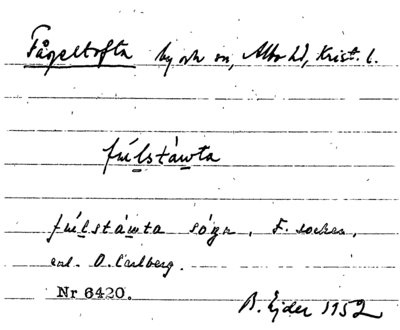 Fågeltofta by och sn, Albo hd, Krist. l.
fúlstáwta
fúlstáwta sógn, F. socken,
enl. O. Carlberg.
Nr 6420.
B. Ejder 1952